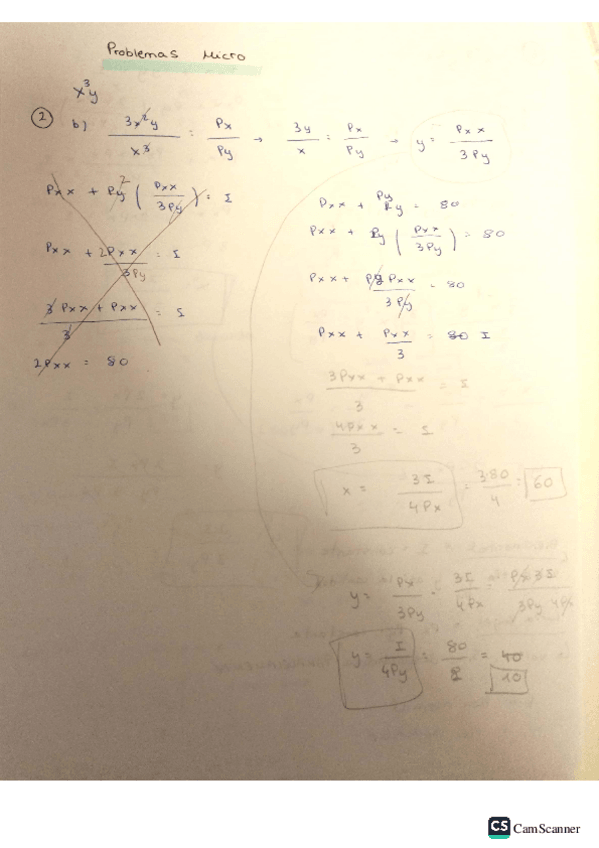 Problemas Micro
x³y
② b) 3x²y / x³ = Px / Py → 3y / x = Px / Py → y = Px x / 3Py
Px x + Py² ( Px x / 3Py ) = I
Px x + 2Px x / 3Py = I
3Px x + Px x / 3 = I
2Px x = 80
Px x + Py y = 80
Px x + Py ( Px x / 3Py ) = 80
Px x + Py Px x / 3Py = 80
Px x + Px x / 3 = 80 I
3Px x + Px x / 3 = I
4Px x / 3 = I
x = 3I / 4Px = 3·80 / 4 = 60
y = Px / 3Py · 3I / 4Px = Px 3I / 3Py 4Px
y = I / 4Py = 80 / 8 = 40
10
CS CamScanner